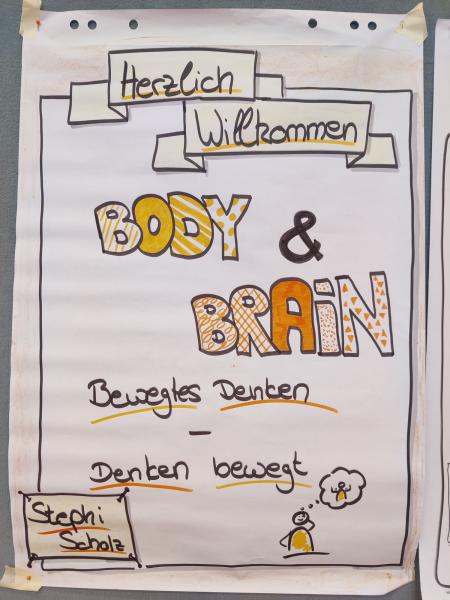 Herzlich
Willkommen
BODY &
BRAiN
Bewegtes Denken
–
Denken bewegt
Stephi
Scholz